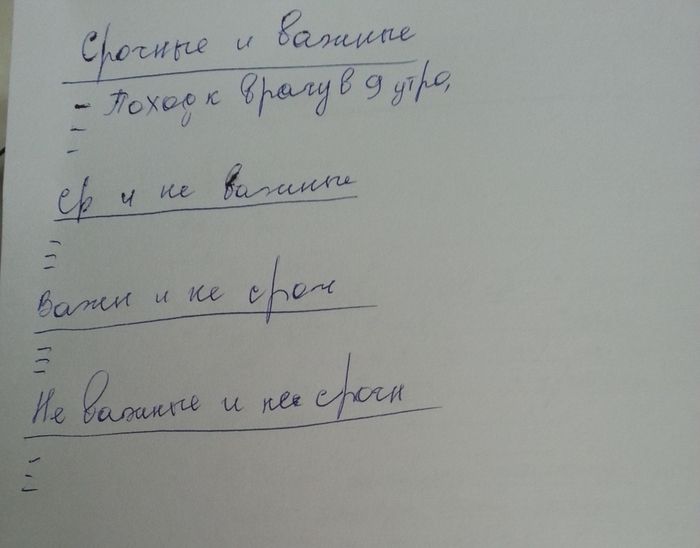 Срочные и важные
- Поход к врачу в 9 утра,
-
-
Ср и не важные
-
-
-
Важн и не сроч
-
-
-
Не важные и не срочн
-
-
-